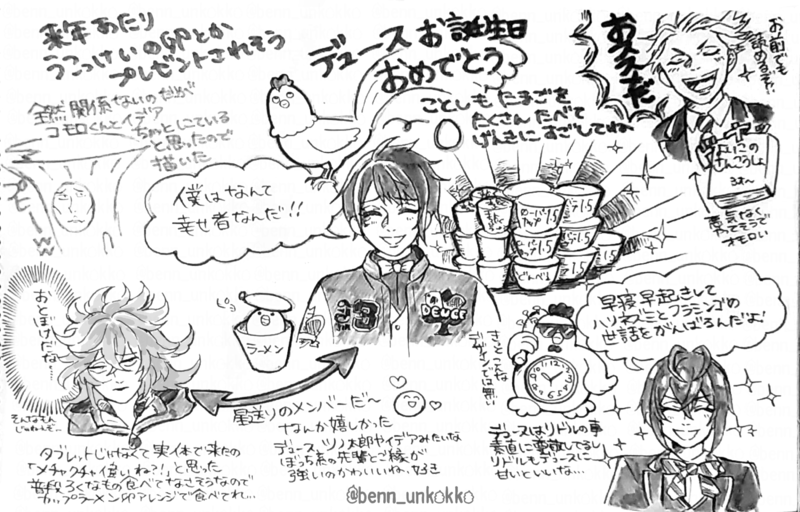 来年あたり
うこっけいの卵とか
プレゼントされそう
デュースお誕生日
おめでとう
ことしもたまごを
たくさんたべて
げんきにすごしてね
おススメだ
お前でも
読めるぞ
よいこの
さんこうしょ
3才〜
悪気なく
やってそうで
オモロい
全然関係ないのだが
コモロくんとイデア
ちゃっとしている
と思ったので
描いた
僕はなんて
幸せ者なんだ!!
DEUCE
早寝早起きして
ハリネズミとフラミンゴの
世話をがんばるんだよ!
きっとこんな
デザインでは無い
デュースはリドルの事
素直に尊敬してるし
リドルもデュースに
甘いといいな…
おとぼけだな…
ピヨ
ラーメン
星送りのメンバーだ〜
なんか嬉しかった
デュース、ツノ太郎やイデアみたいな
ぼっち系の先輩とご縁が
強いのかわいいね、好き
タブレットじゃなくて実体で来たの
「メチャクチャ偉いね?!」と思った
普段ろくなもの食べてなさそうなので
カップラーメン卵アレンジで食べてれ…
@benn_unkokko